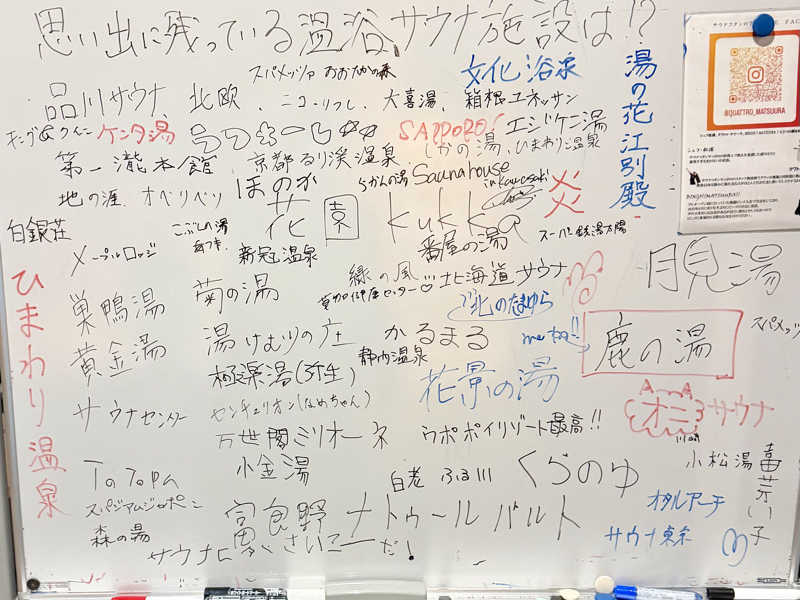 思い出に残っている温浴、サウナ施設は!?
スパメッツァ おおたかの森
文化浴泉
湯の花 江別殿
品川サウナ
北欧、ニコーリフレ、大喜湯、箱根ユネッサン
@QUATTRO_MATSUURA
キング&クイーン
ケンタ湯
SAPPORO!
エジケニ湯
第一滝本館、京都るり渓温泉、しかの湯、ひまわり温泉
地の涯 オベリベリ
ほのか
らかんの湯
Saunahouse
in Kawasaki
炎
白銀荘
こぶしの湯
花園
kukka
スーパー銭湯太陽
メープルロッジ
新冠温泉
番屋の湯
月見湯
ひまわり温泉
巣鴨湯
菊の湯
緑の風
北海道サウナ
北のたまゆら
黄金湯
湯けむりの庄
かるまる
静内温泉
me too!!
鹿の湯
スパメッツ
極楽湯(弥生)
花景の湯
サウナセンター
センチュリオン(なめちゃん)
オニサウナ
万世閣ミリオーネ
ウポポイリゾート最高!!
ToTopa
小金湯
白老 ふる川
くらのゆ
小松湯
スパジアムジャポン
オタルアーチ
森の湯
富良野 ナトゥールバルト
サウナ東京